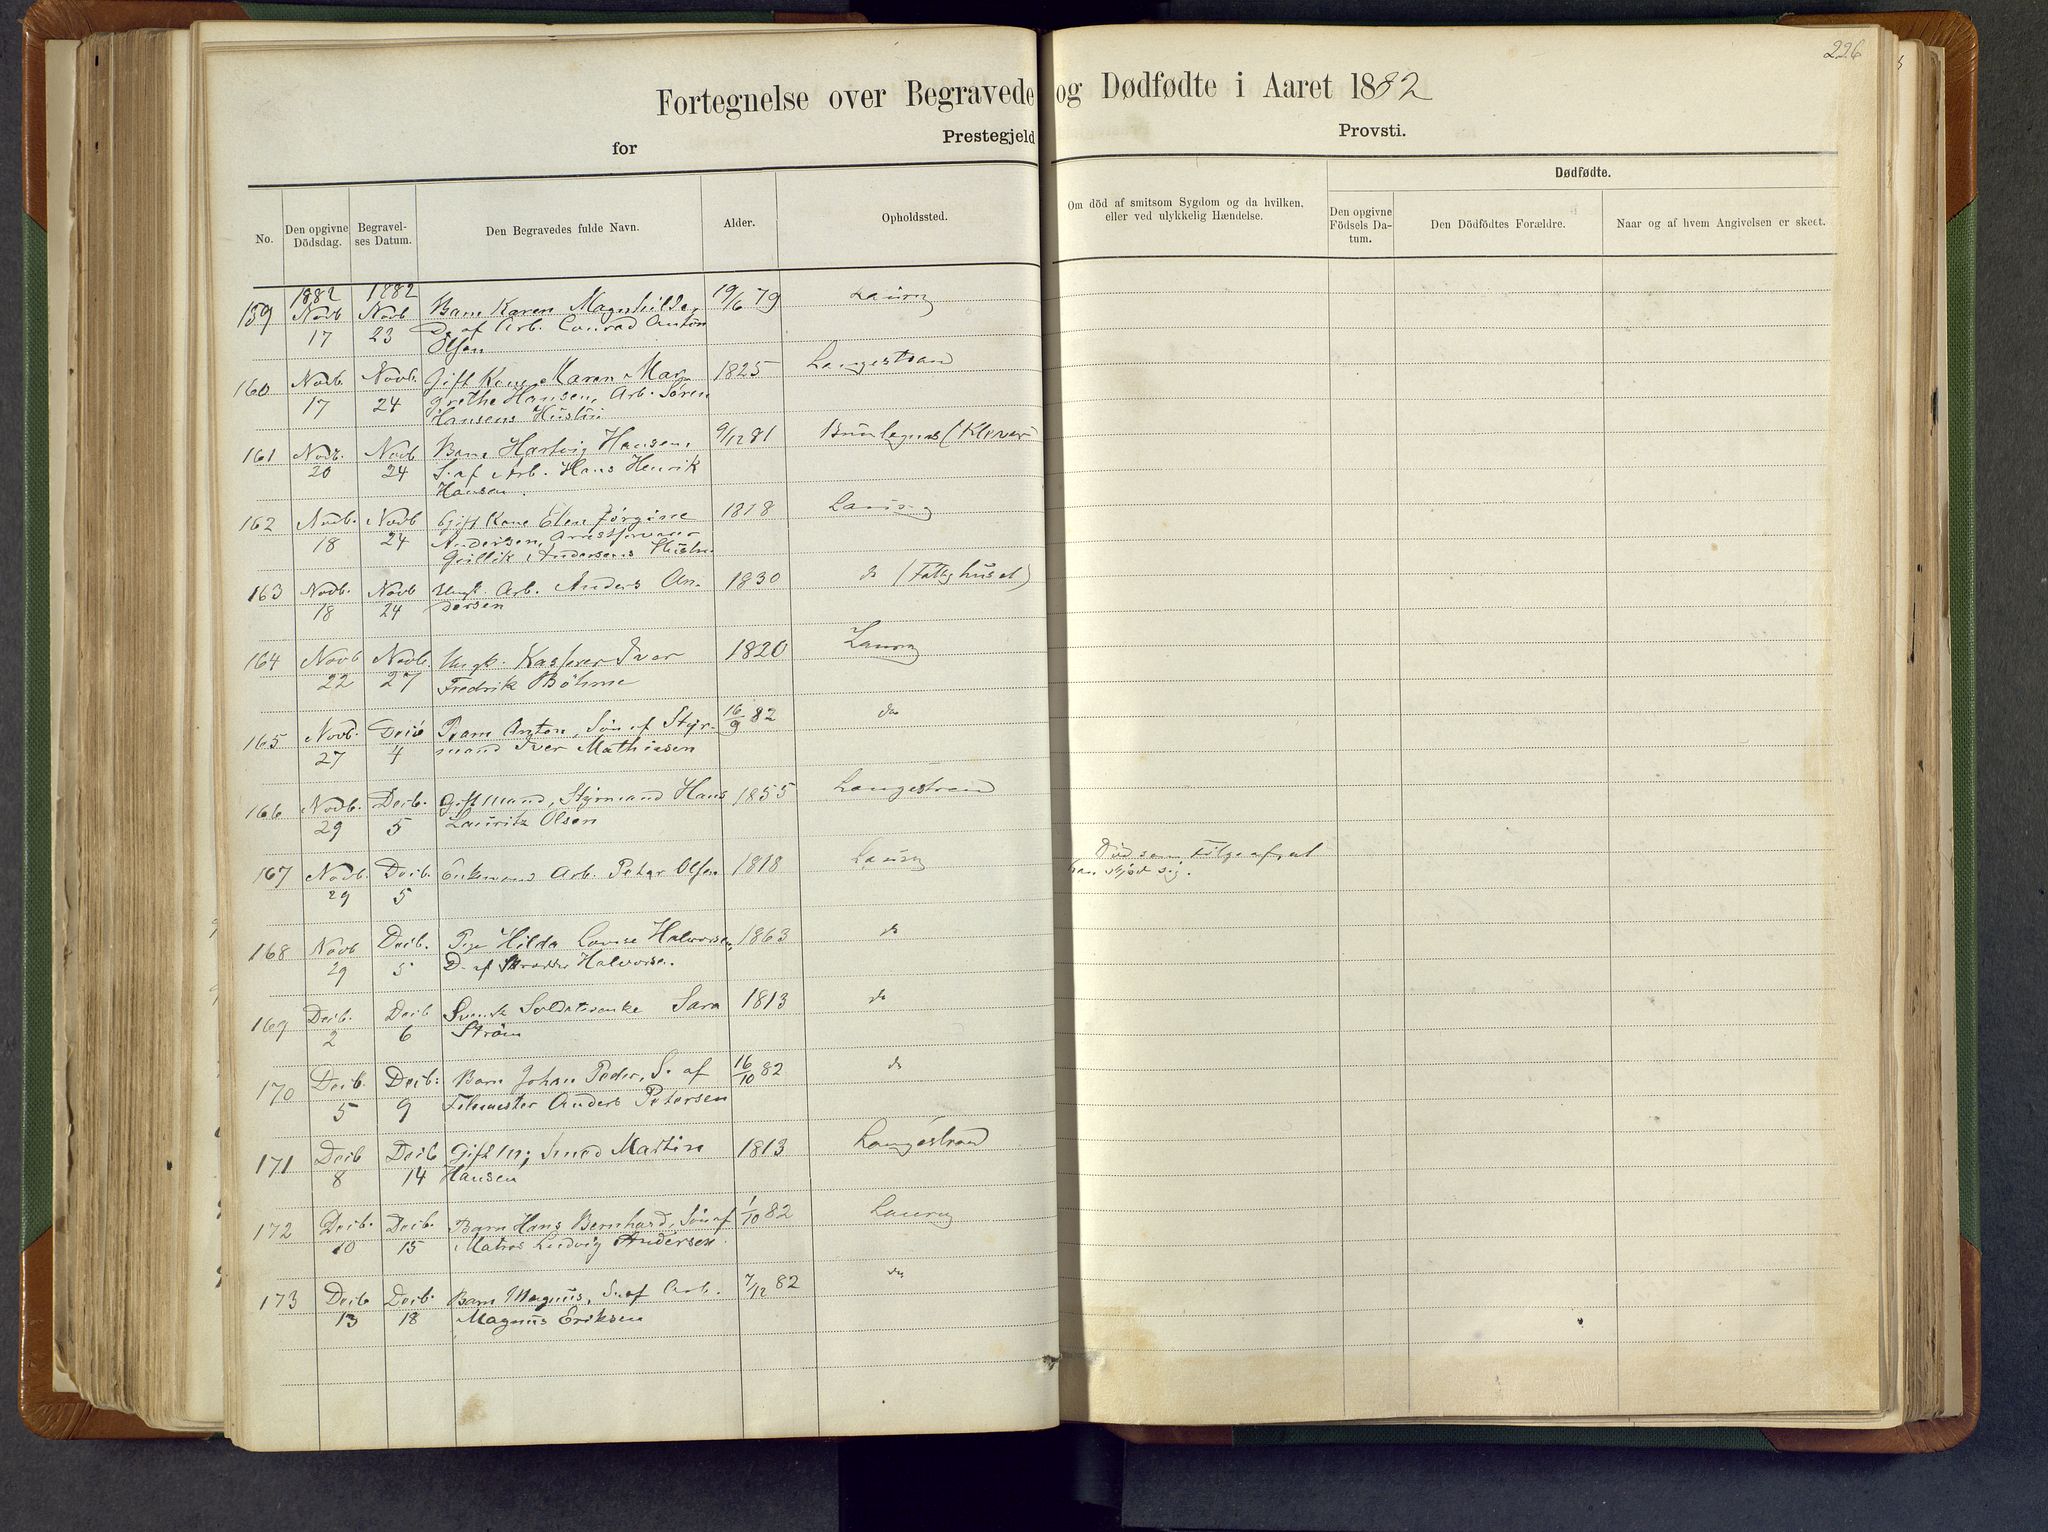 226
Fortegnelse over Begravede og Dødfødte i Aaret 1882
for Prestegjeld Provsti.
No. Den opgivne Dödsdag. Begravelses Datum. Den Begravedes fulde Navn. Alder. Opholdssted. Om död af smitsom Sygdom og da hvilken, eller ved ulykkelig Hændelse. Dødfødte.
Den opgivne Födsels Datum. Den Dödfödtes Forældre. Naar og af hvem Angivelsen er skeet.
1882 1882
159 Novb Novb Barn Karen Magnhilda, 19/6 79 Laurv
17 23 D. af Arb. Conrad Anton
Olsen
160 Novb. Novb. Gift Kone Maren Mar- 1825 Langestrand
17 24 grethe Hansen, Arb. Søren
Hansens Hustru
161 Novb. Novb Barn Hartvig Hansen, 9/12 81
20 24 S. af Arb. Hans Henrik
Hansen.
162 Novb. Novb Gift Kone Elen Jørgine 1818 Laurv
18 24 Andersen,
Gullik Andersens Hustru
163 Novb. Novb Ungk. Arb. Anders An- 1830 do (Fattighuset)
18 24 dersen
164 Novb Novb. Ungk. Kasper Iver 1820 Laurv
22 27 Fredrik Böhme
165 Novb. Decb Barn Anton, Søn af Styr- 16/9 82 do
27 4 mand Iver Mathisen
166 Novb. Decb. Gift Mand, Styrmand Hans 1855 Langestrand
29 5 Lauritz Olsen
167 Novb. Decb. Enkemand Arb. Peter Olsen 1818 Laurv Död som Følge af at
29 5 han skjød sig.
168 Novb Decb. Pige Hilda Lovise Halvorsen, 1863 do
29 5 D. af Skrædder Halvorsen.
169 Decb. Decb Svensk Soldatenke Sara 1813 do
2 6 Ström
170 Decb. Decb: Barn Johan Peder, S. af 16/10 82 do
5 9 Anders Petersen
171 Decb Decb Gift M, Smed Martin 1813 Langestrand
8 14 Hansen
172 Decb. Decb. Barn Hans Bernhard, Søn af 1/10 82 Laurv
10 15 Matros Ludvig Andersen.
173 Decb Decb. Barn Magnus, S. af Arb. 7/12 82 do
13 18 Magnus Eriksen